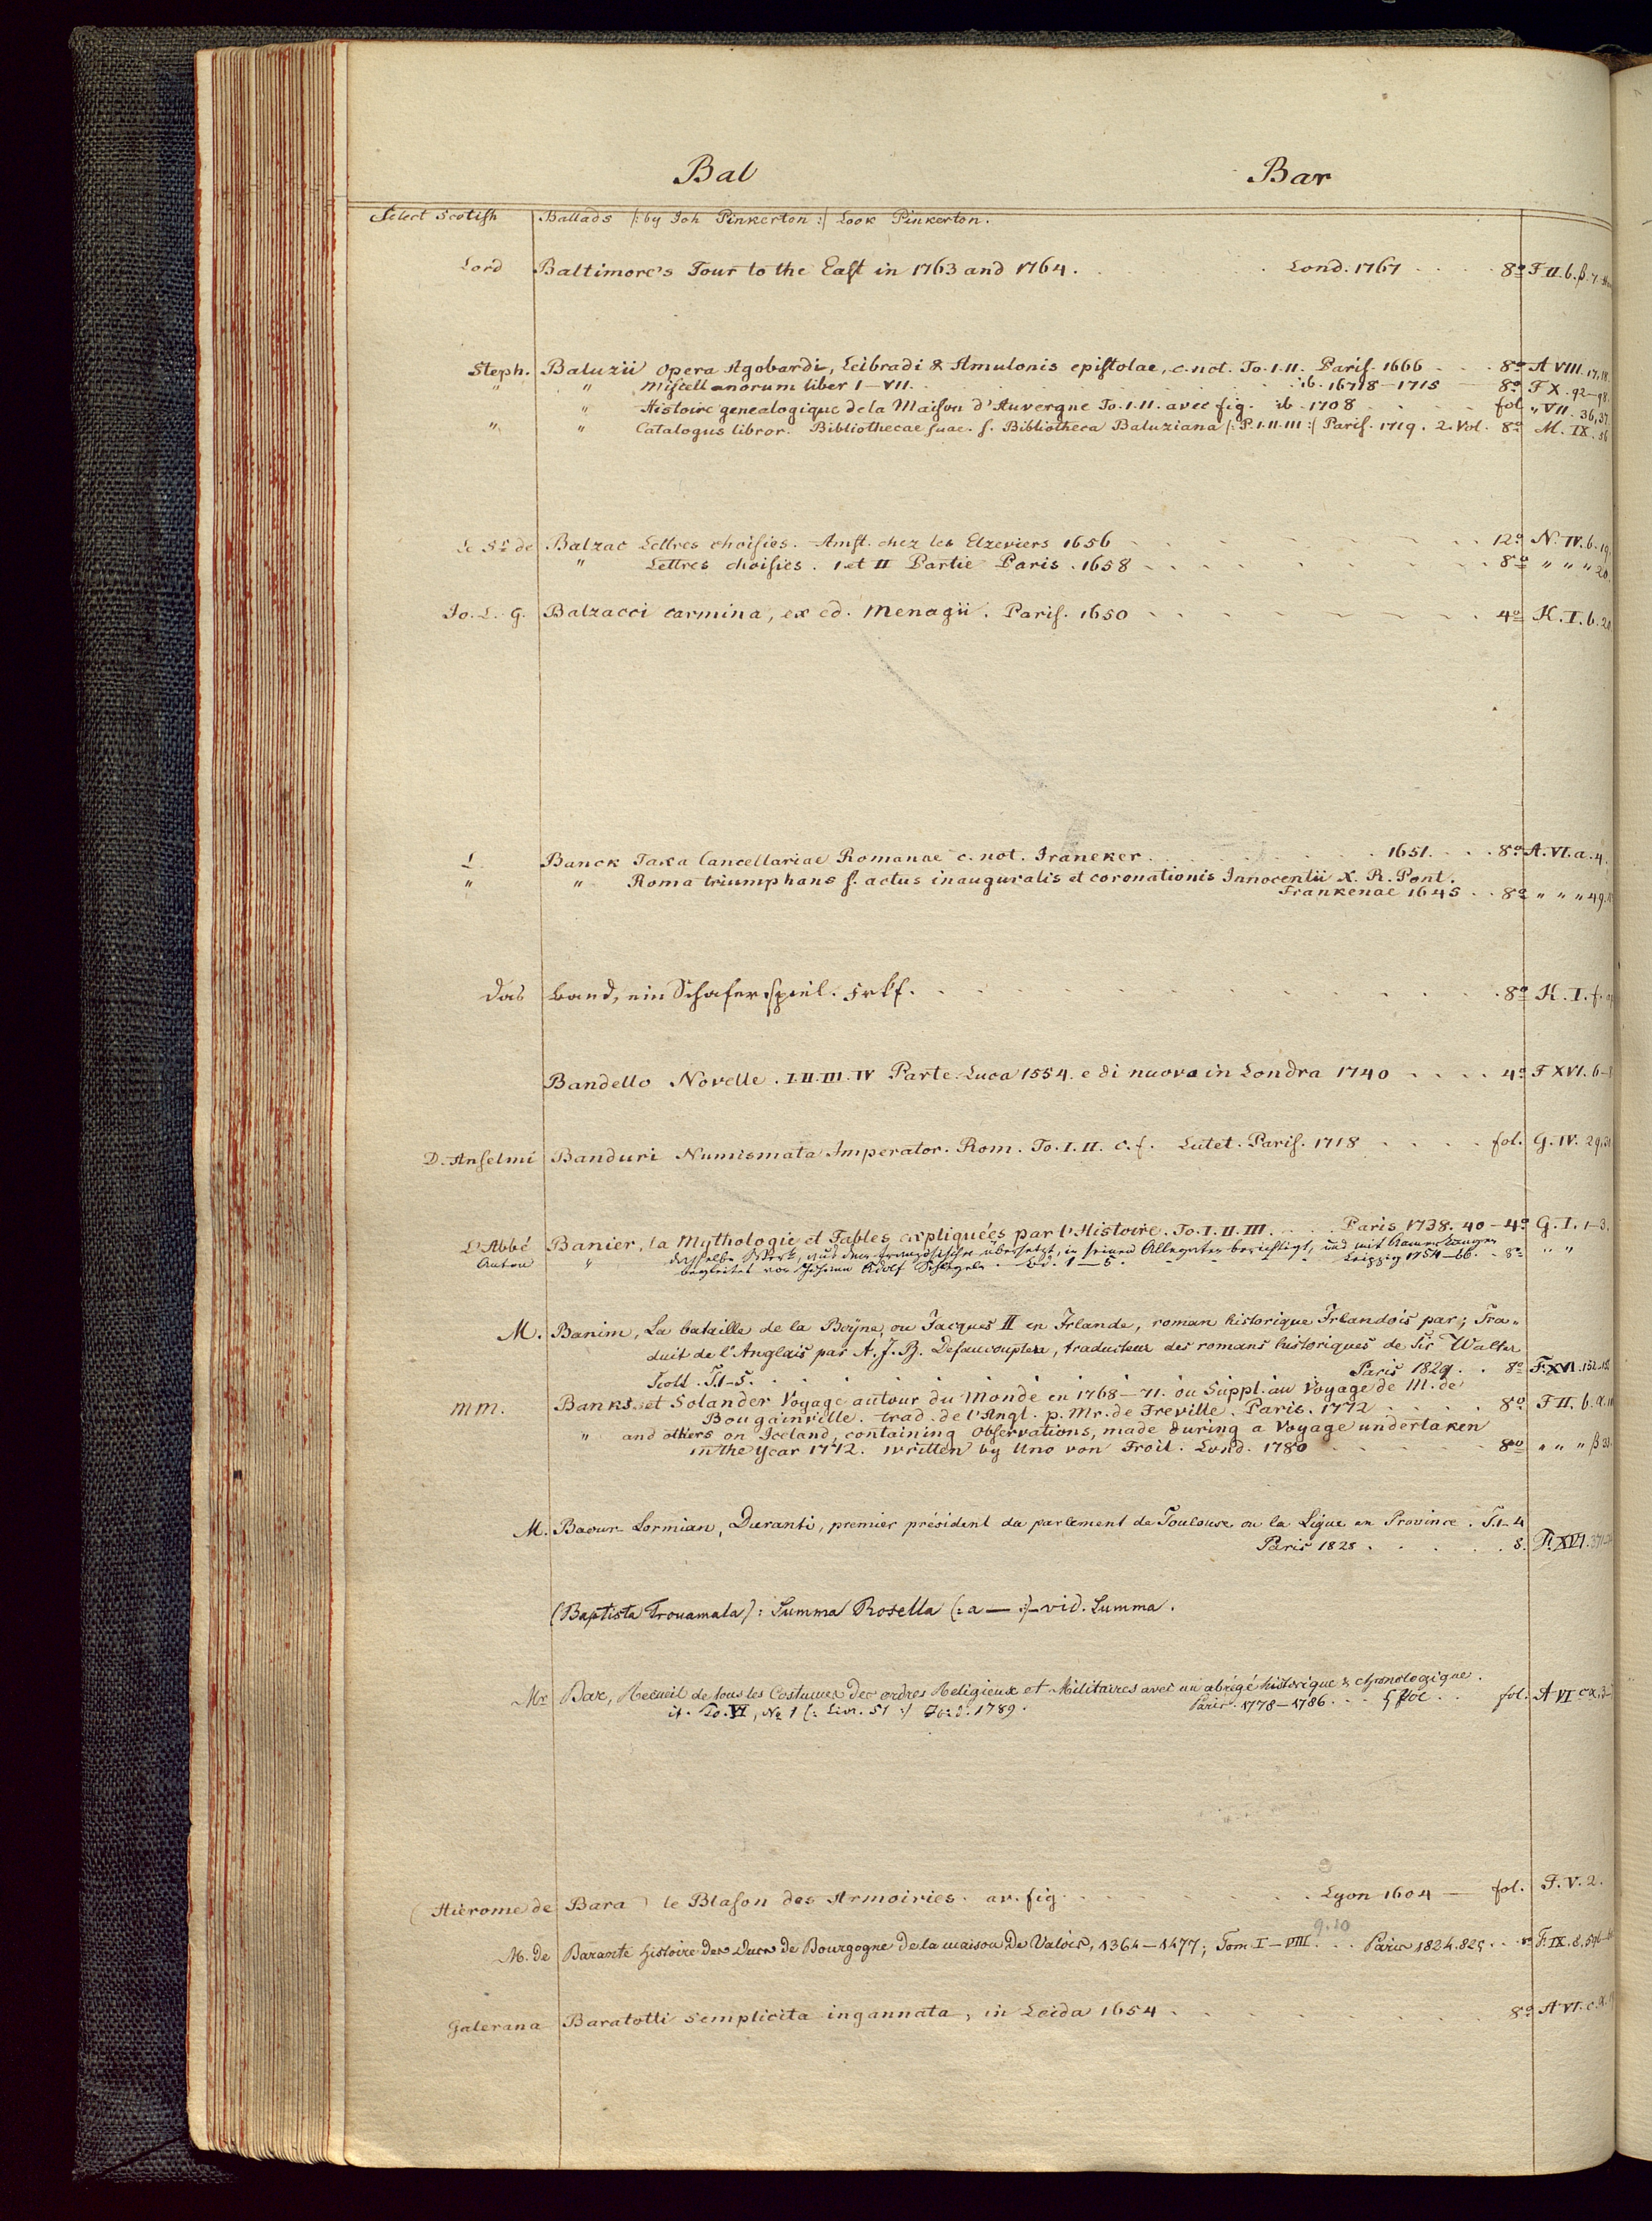 Bal Bar
Select Scotish Ballads /: by Joh Pinkerton :/ Look Pinkerton.
Lord Baltimore's Tour to the East in 1763 and 1764. Lond. 1767 8º F II. b. β. 7.
Steph. Baluzii Opera Agobardi, Leibradi & Amulonis epistolae, c. not. To. I. II. Paris. 1666 8º A VIII. 17, 18.
" " Miscellanorum liber I–VII. ib. 1678–1715 8º F X. 92–98.
" Histoire genealogique de la Maison d'Auvergne To. I. II. avec fig. ib. 1708 fol. " VII. 36, 37
" " Catalogus libror. Bibliothecae suae. s. Bibliotheca Baluziana /: P. I. II. III :/ Paris. 1719. 2. Vol. 8º M. IX. 56
Le Sr. de Balzac Lettres choisies. Amst. chez les Elzeviers 1656 12º N. IV. b. 19.
" Lettres choisies. I et II Partie Paris. 1658 8º " " " 20.
Jo. L. G. Balzacci carmina, ex ed. Menagii. Paris. 1650 4º K. I. b. 20
L. Banck Taxa Cancellariae Romanae c. not. Franeker. 1651. 8º A. VI. a. 4.
" " Roma triumphans s. actus inauguralis et coronationis Innocentii X. R. Pont.
Frankenae 1645 8º " " " 49.
Das Band, ein Schäferspiel. Frkf. 8º K. I. f.
Bandello Novelle. I. II. III. IV Parte. Luca 1554. e di nuovo in Londra 1740 4º F XVI. 6–
D. Anselmi Banduri Numismata Imperator. Rom. To. I. II. c. f. Lutet. Paris. 1718 fol. G. IV. 29, 30
L'Abbé Banier, la Mythologie et Fables expliquées par l'Histoire. To. I. II. III. Paris 1738. 40 – 4º G. I. 1–3.
Anton " dasselbe Werk, aus dem Französischen übersetzt, in seinen Allegaten berichtigt, und mit Anmerkungen
begleitet von Johann Adolf Schlegeln. Bd. 1–5. Leipzig 1754–66. 8º " "
M. Banim, La bataille de la Boyne, ou Jacques II en Irlande, roman historique Irlandois par; Tra-
duit de l'Anglais par A. J. B. Defauconpter, traducteur des romans historiques de Sir Walter
Scott. T. 1–5. Paris 1829. 8º F. XVI. 152
MM. Banks et Solander Voyage autour du Monde en 1768–71. ou Suppl. au Voyage de M. de
Bougainville. trad. de l'Angl. p. Mr. de Freville. Paris. 1772 8º F II. b. α.
" and others on Iceland, containing Observations, made during a Voyage undertaken
in the Year 1772. written by Uno von Troil. Lond. 1780 8vo " " " β 33.
M. Baour-Lormian, Duranti, premier président du parlement de Toulouse ou la Ligue en Province. T. 1–4
Paris 1828. 8. F. XVI.
(Baptista Trovamala): Summa Rosella (: a — :) – vid. Summa.
Mr. Bar, Recueil de tous les Costumes des ordres Religieux et Militaires avec un abrégé historique & chronologique.
Paris. 1778–1786. 5 Vol fol. A VI c α. 3–
it. To. VI, No 1 (: Livr. 51 :) 1789.
(Hierome de Bara) le Blason des Armoiries. av. fig. Lyon 1604 – fol. F. V. 2.
9. 10
M. de Barante histoire des Ducs de Bourgogne de la maison de Valois, 1364–1477; Tom I–VIII. Paris 1824. 825 8º F. IX. 8. 596
Galerana Baratotti Semplicita ingannata, in Leida 1654 8º A VI. c. α.